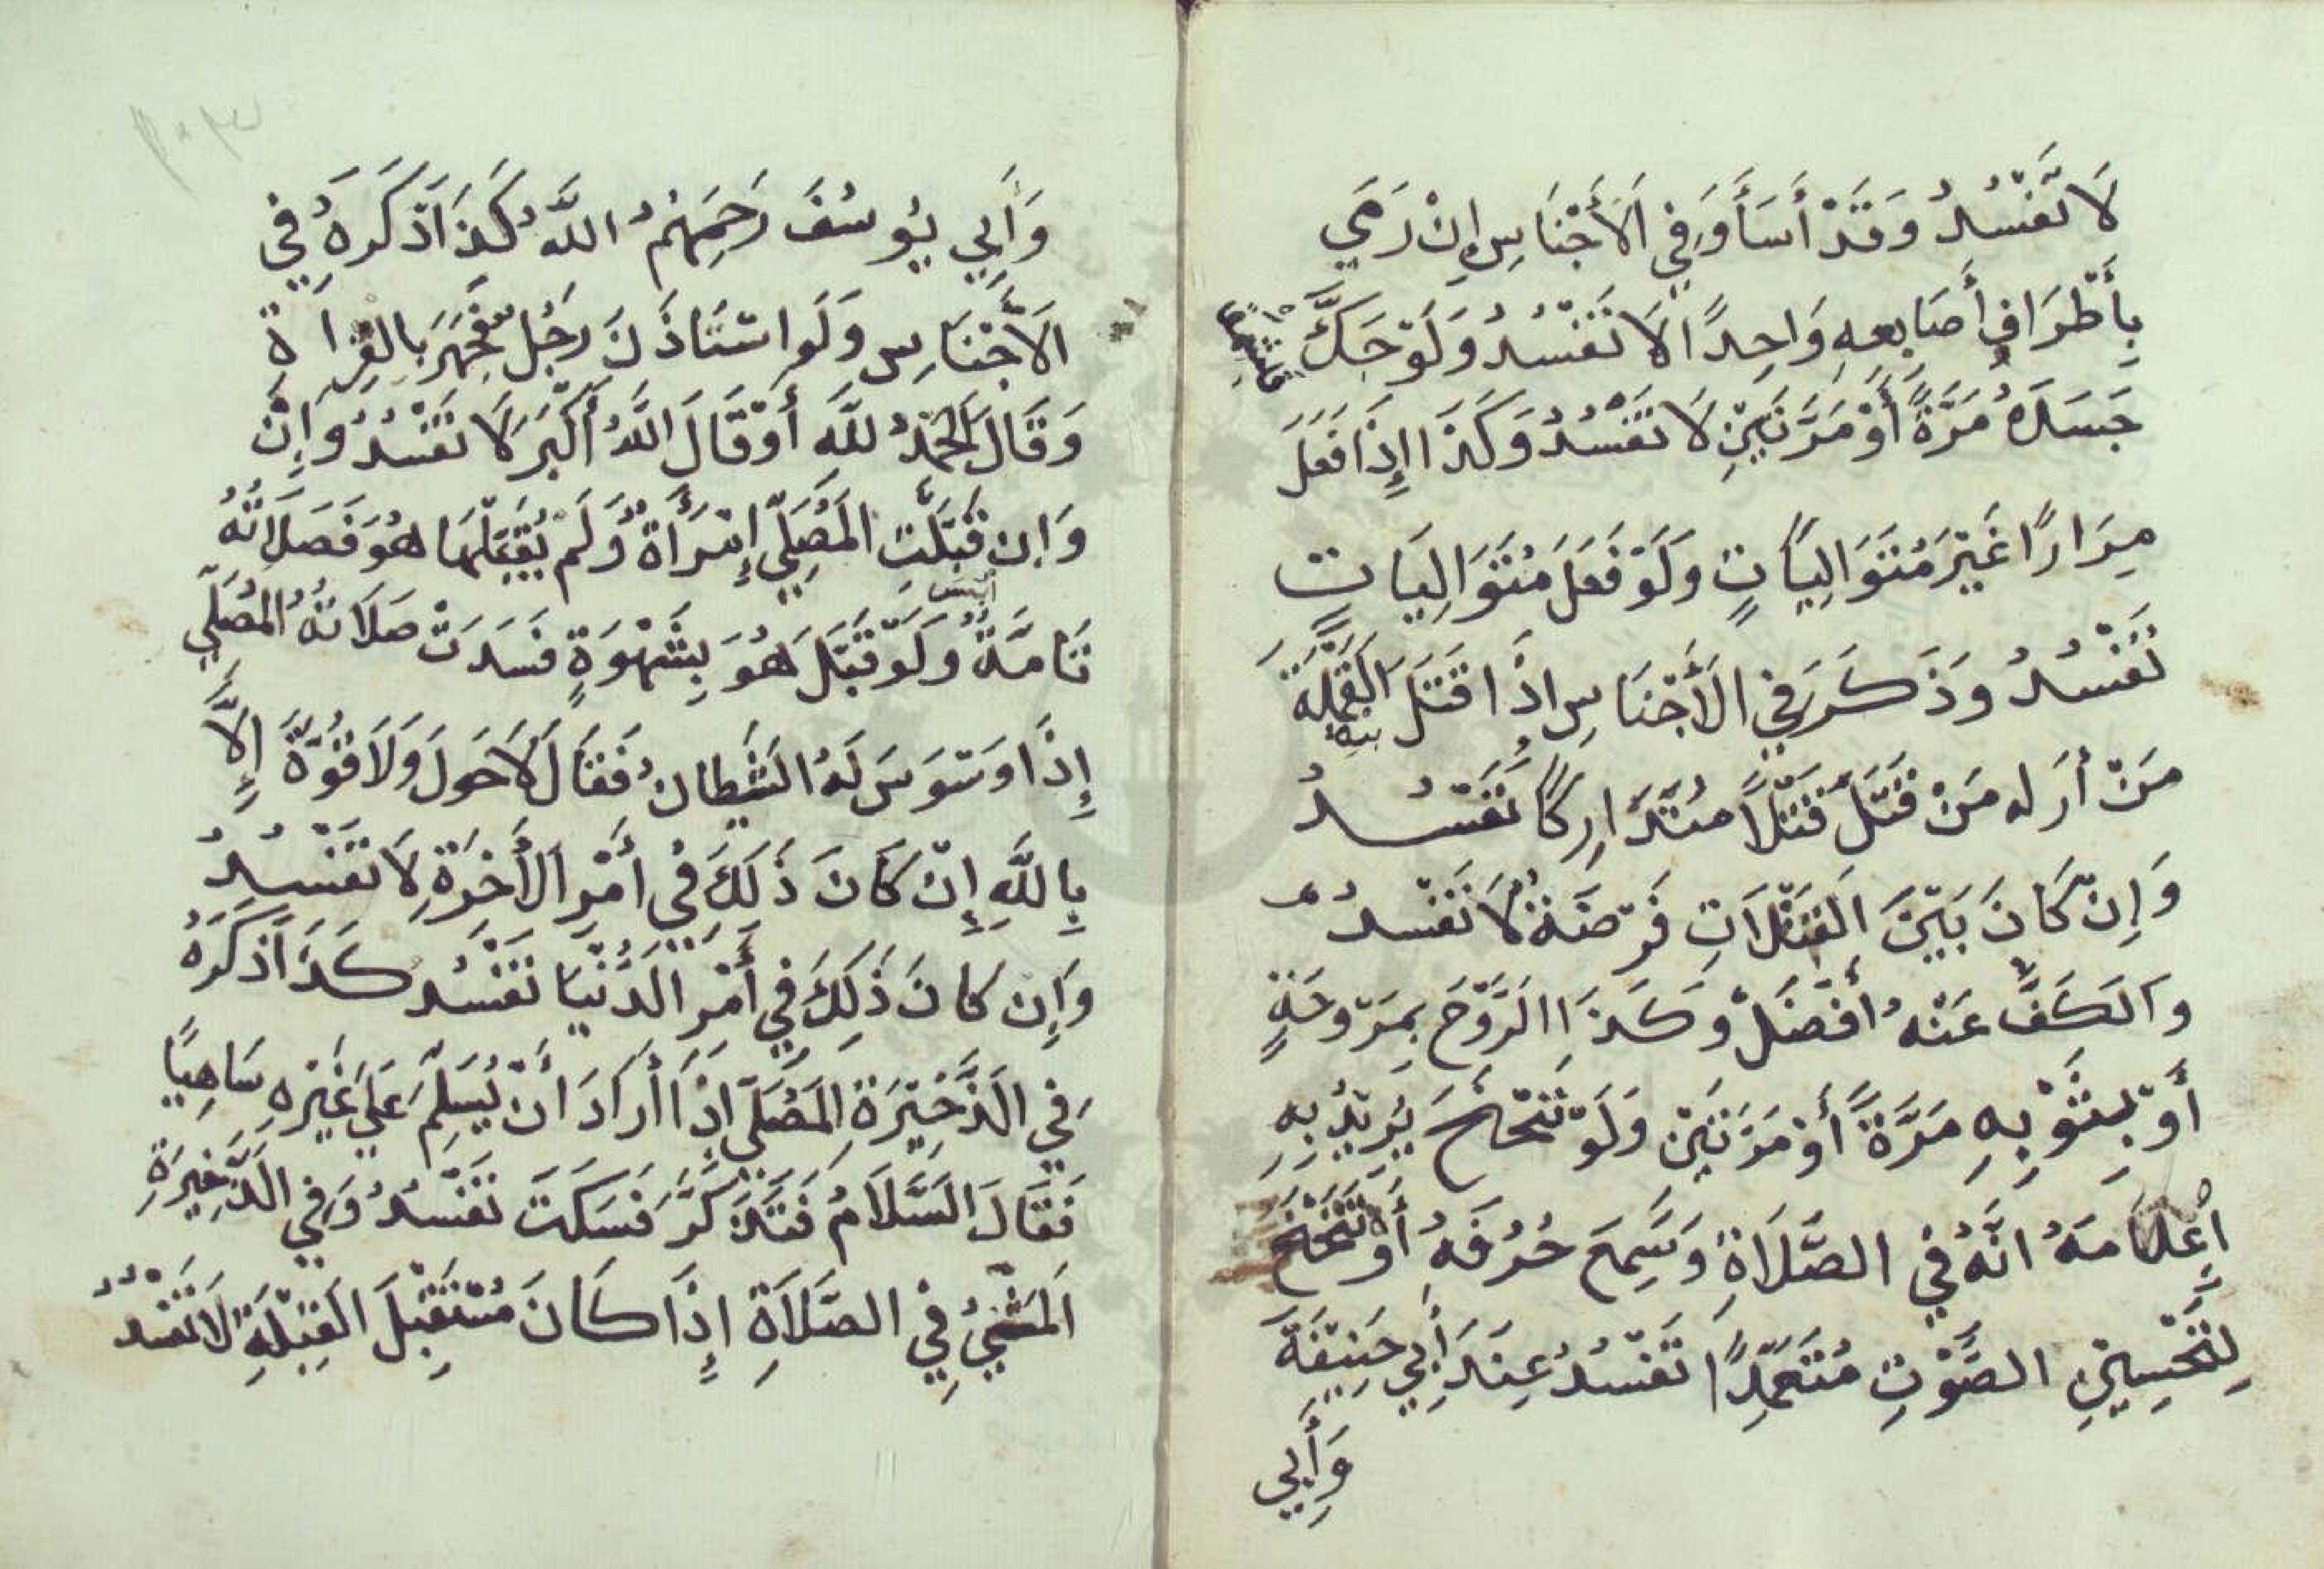 لَا تَفْسُدُ وَقَدْ أَسَأَ وَفِي الَأَجْنَاسِ إِنْ رَمَي
بِأَطْرَافِ أَصَابِعِهِ وَاحِدًا لَا تَفْسُدُ وَلَوْ حَكَّ
جَسَدَهُ مَرَّةً أَوْ مَرَّتَيْنِ لَا تَفْسُدُ وَكَذَا إِذَا فَعَلَ
مِرَارًا غَيْرَ مُتَوَالِيَاتٍ وَلَوْ فَعَلَ مُتَوَالِيَاتٍ
تَفْسُدُ وَذَكَرَ فِي الَأَجْنَاسِ إِذَا قَتَلَ الْقَمْلَةَ
مَنْ أرَله مَنْ قَتَلَ قَتْلًا مُتَدَارِكًا تَفْسُدُ
وَإِنْ كَانَ بَيْنَ الْقَتْلَاتِ فَرْصَةٌ لَا تَفْسُدُ
وَالَكَفُّ عَنْهُ أَفْضَلُ وَكَذَا الَرَّوْحَ بِمَرْوحَةٍ
أَوْ بِثَوْبِهِ مَرَّةً أَوْ مَرَّتَيْنِ وَلَوْ تَنَحْنَحَ يُرِيْدُ بِهِ
إِعْلَامَهُ انَّهُ فِي الصَّلَاةِ وَسَمِعَ حُرُفَهُ أَوْ تَنَحْنَحَ
لِتَحْسِيْنِ الصَّوْتِ مُتَعَمِّدًا تَفْسُدُ عِنْدَ أَبِي حَنِيْفَةَ
وَأَبِي
وَأَبِي يُوسُفَ رَحِمَهُمُ اللَّهُ كَذَا ذَكَرَهُ فِي
الَأَجْنَاسِ وَلَوِ اسْتَاذَنَ رَجُلٌ فَجَهَرَ بِالْقِرَاةِ
وَقَالَ الْحَمْدُ لِلَّهِ أَوْ قَالَ اللَّهُ أَكْبَرَ لَا تَفْسُدُ وَإِنْ
وَإِن قَبَّلَتِ الْمُصَلِّي إِمْرَأَةٌ وَلَمْ يُقَبِّلْهَا هُوَ فَصَلَاتُهُ
تَامَّةٌ وَلَوْ قَبَّلَ هُوَ بِشَهْوَةٍ فَسَدَتْ صَلَاتُهُ الْمُصَلِّي
إِذَا وَسْوَسَ لَهُ الشَّيْطَانُ فَقَالَ لَا حَوْلَ وَلَا قُوَّةَ إِلَّا
بِاللَّهِ إِنْ كَانَ ذَلِكَ فِي أَمْرِ الَأَخِرَةِ لَا تَفْسُدُ
وَإِن كَانَ ذَلِكَ فِي أَمْرِ الدُّنْيَا تَفْسُدُ كَذَا ذَكَرَهُ
فِي الذَّخِيْرَةِ الْمُصَلِّي إِذَا أَرَادَ أَنْ يُسَلِّمَ عَلَي غَيْرِهِ سَاهِيًا
فَقَالَ السَّلَامُ فَتَذَكَّرَ فَسَكَتَ تَفْسُدُ وَفِي الذَّخِيْرَةِ
الْمَشْيُ فِي الصَّلَاةِ إِذَا كَانَ مُسْتَقْبِلَ الْقِبْلَةِ لَا تَفْسُدُ